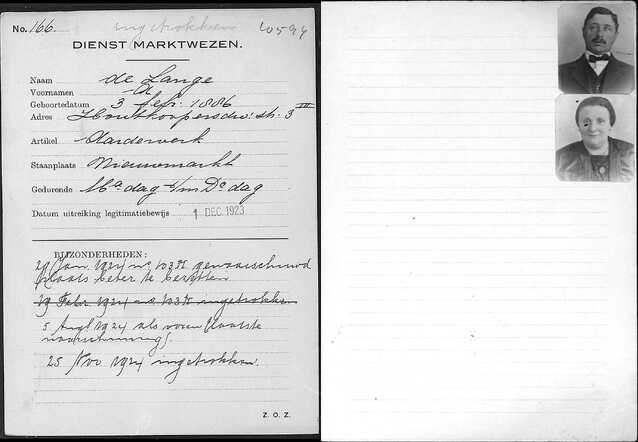 No. 166. ingetrokken 10594
DIENST MARKTWEZEN.
Naam de Lange
Voornamen A
Geboortedatum 3 febr. 1886
Adres Houtkoopersdw. str. 3 III
Artikel Aardewerk
Staanplaats Nieuwmarkt
Gedurende Ma dag t/m Do dag
Datum uitreiking legitimatiebewijs 1 DEC. 1923
BIJZONDERHEDEN:
Jan. 1924 no gewaarschuwd
plaats beter te bezetten
19 Febr 1924 ingetrokken
5 Aug 1924 als voren laatste
waarschuwing.
25 Nov 1924 ingetrokken.
Z. O. Z.